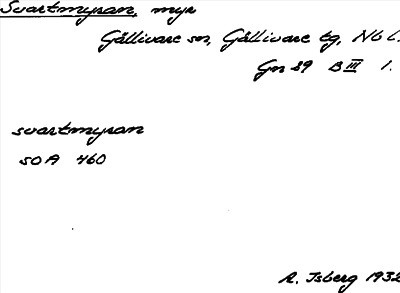 Svartmyran, myr
Gällivare sn, Gällivare tg, Nb l.
Gn 89 B III 1.
svartmyran
SOA 460
R. Isberg 1932